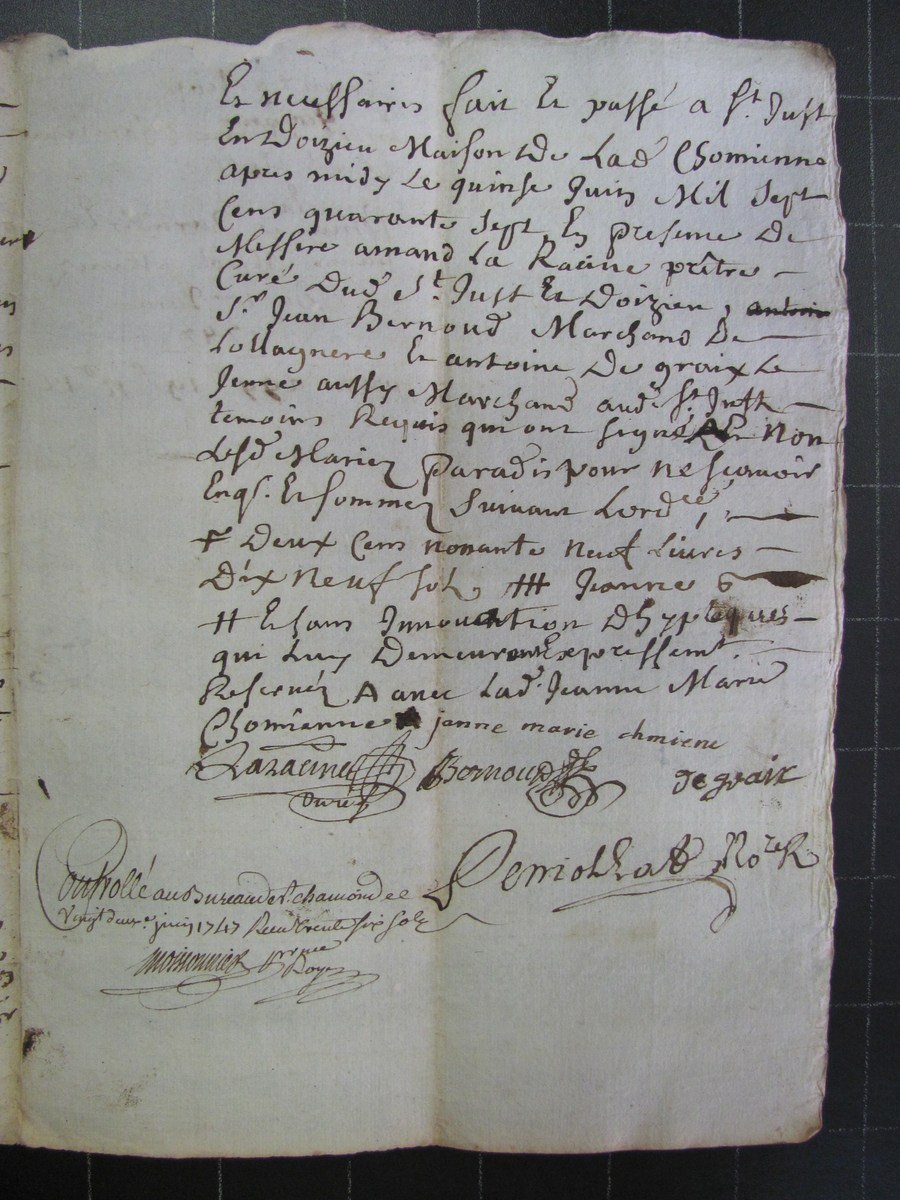 Et necessaires fait Et passé a St. Just
En Doizieu Maison De Lad. Chomienne
apres midy Le quinse Juin Mil Sept
Cens quarante Sept En presence De
Messire amand La Racine prêtre
Curé Dud. St. Just Et Doizieu, antoine
Sr. Jean Bernoud Marchand De
Et antoine De graix Le
Jeune aussy Marchand aud. St. Just
temoins Requis qui ont signé Et Non
Lesd. Mariez paradis pour ne scavoir
Enqs. Et sommez suivant Lordce,
Deux Cens nonante Neuf Livres
Dix Neuf sols Jeanne
Et sans Innovation Dhypteques
qui Luy Demeurent Expressemt.
Reservez avec Lad. Jeanne Marie
Chomienne janne marie chmiene
Laracine Bernoud De graix
Curé
Perriollat Nore R
Controllé au Bureau de St. chamond le
Vingt deux juin 1747 Reçu trente six sols